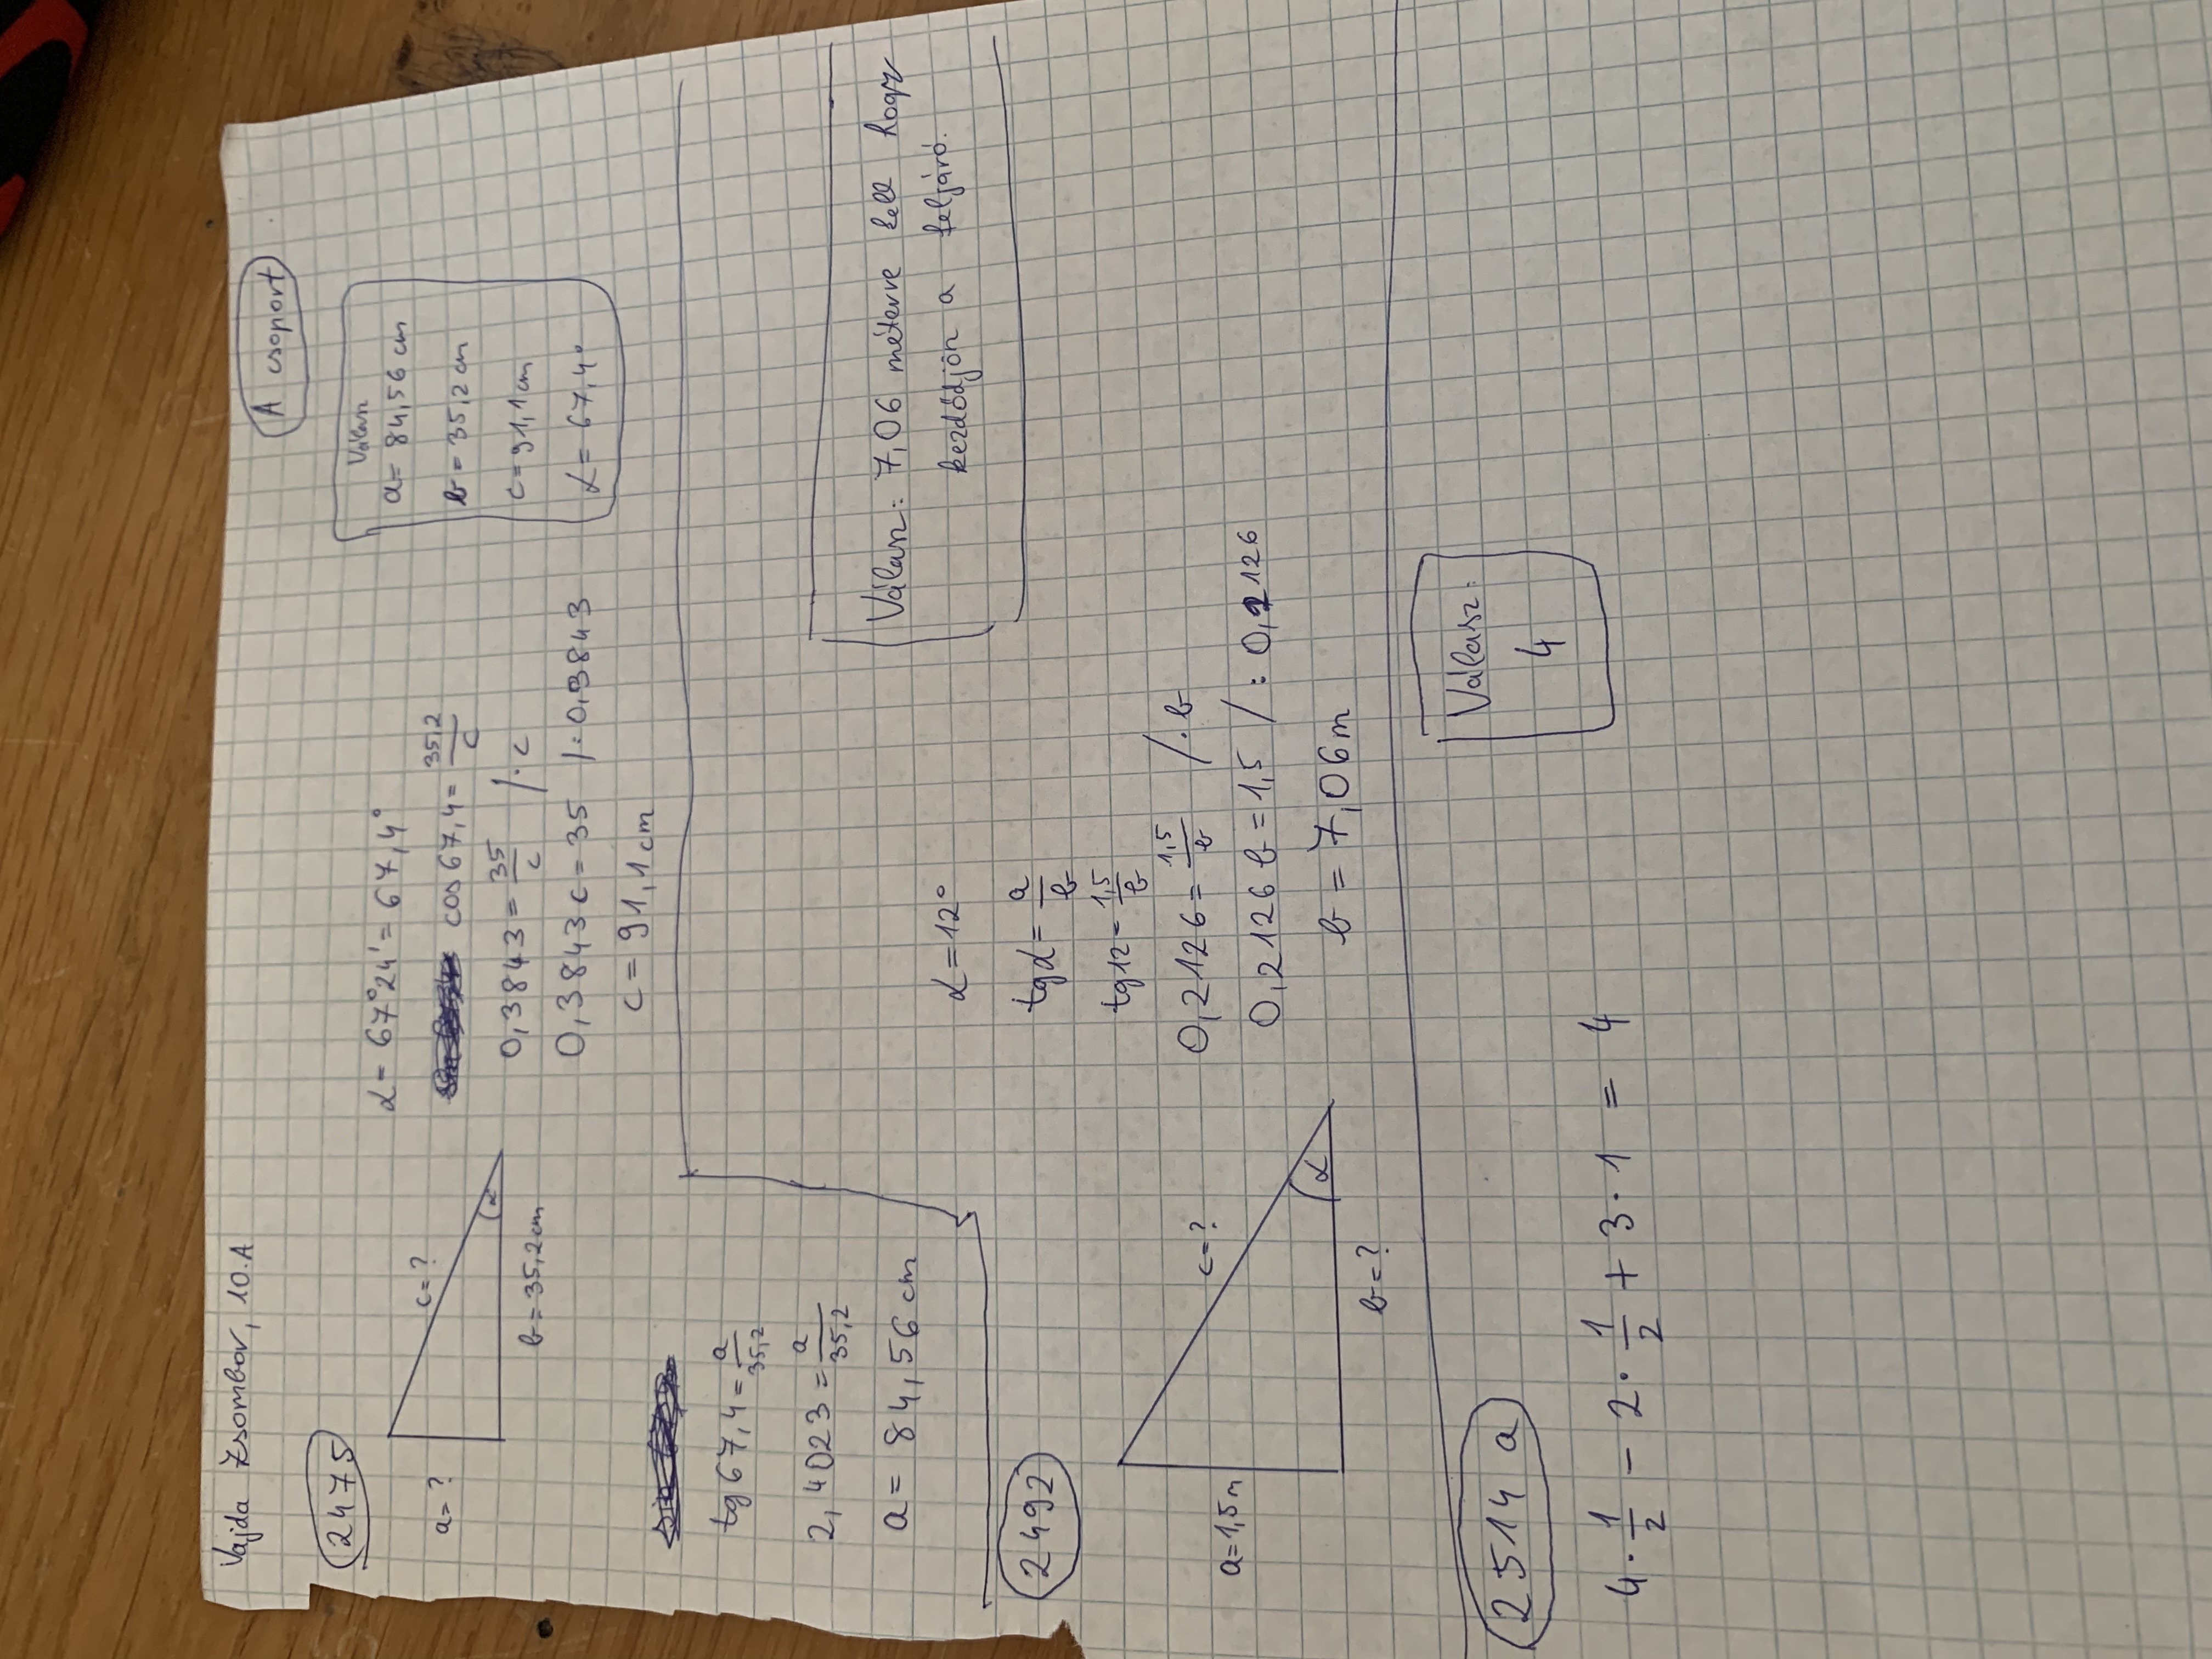 Vajda Zsombor, 10.A
A csoport
2475
a=?
c=?
α
b=35,2cm
α= 67°24'= 67,4°
cos67,4= 35,2/c
0,3843= 35/c /·c
0,3843c=35 /:0,3843
c=91,1cm
Válasz
a= 84,56 cm
b=35,2 cm
c=91,1cm
α=67,4°
tg67,4= a/35,2
2,4023= a/35,2
a= 84,56cm
2492
a=1,5m
c=?
α
b=?
α=12°
tgα= a/b
tg12= 1,5/b
0,2126= 1,5/b /·b
0,2126b=1,5 /:0,2126
b=7,06m
Válasz: 7,06 méterre kell hogy
kezdődjön a feljáró.
2514 a
4·1/2 - 2·1/2 + 3·1 = 4
Válasz:
4